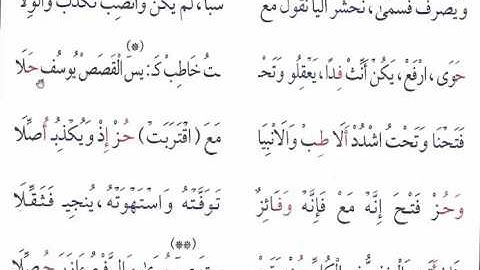 وَيَصْرِفُ فَسَمَّى، نَحْشُرُ الْيَا نَقُولُ مَعْ سَبَأ، لَمْ يَكُنْ وَانْصِبْ نُكَذِّبُ وَالْوِلَا
حَوَى، ارْفَعْ، يَكُنْ أَنِّثْ فِدًا، يَعْقِلُو وَتَحْـ ـتُ خَاطِبْ كَـ: يسَ الْقَصَصْ يُوسُفٍ حَلَا (*)
فَتَحْنَا وَتَحْتُ اشْدُدْ أَلَا طِبْ وَالَانْبِيَا مَعَ (اقْتَرَبَتْ) حُزْ إِذْ وَيُكْذِبُ أُصِّلَا
وَحُزْ فَتْحَ إِنَّهُ مَعْ فَإِنَّهُ وَفَائِزٌ تَوَفَّتْهُ وَاسْتَهْوَتْهُ، يُنْجِي فَثَقِّلَا
(**)